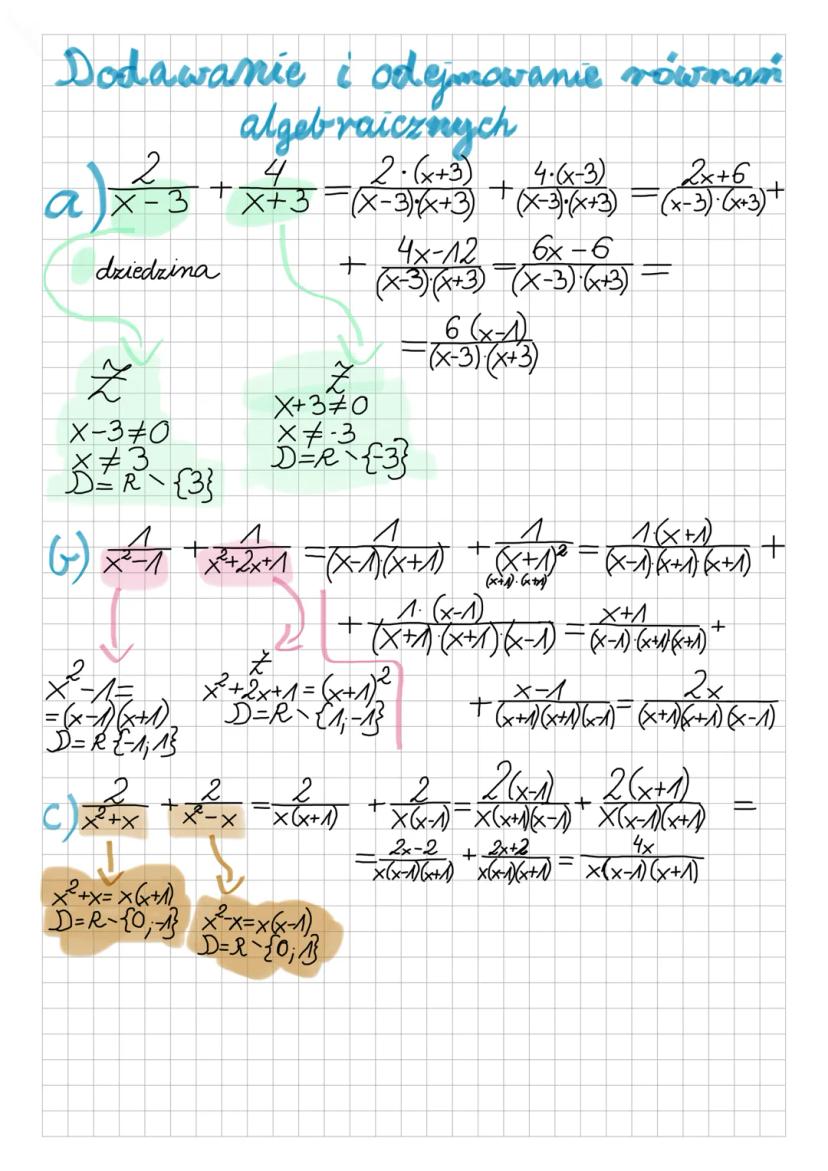 Dodawanie i odejmowanie równań
algebraicznych
a) 2/(x-3) + 4/(x+3) = 2·(x+3)/((x-3)·(x+3)) + 4·(x-3)/((x-3)·(x+3)) = (2x+6)/((x-3)·(x+3)) +
dziedzina
+ (4x-12)/((x-3)·(x+3)) = (6x-6)/((x-3)·(x+3)) =
= 6(x-1)/((x-3)·(x+3))
Ƶ
x-3≠0
x≠3
D=R∖{3}
Ƶ
x+3≠0
x≠-3
D=R∖{-3}
b) 1/(x²-1) + 1/(x²+2x+1) = 1/((x-1)(x+1)) + 1/(x+1)² = 1·(x+1)/((x-1)·(x+1)·(x+1)) +
(x+1)·(x+1)
+ 1·(x-1)/((x+1)·(x+1)·(x-1)) = (x+1)/((x-1)·(x+1)(x+1)) +
+ (x-1)/((x+1)(x+1)(x-1)) = 2x/((x+1)(x+1)(x-1))
x²-1=
=(x-1)(x+1)
D=R{-1;1}
Ƶ
x²+2x+1=(x+1)²
D=R∖{1;-1}
c) 2/(x²+x) + 2/(x²-x) = 2/(x(x+1)) + 2/(x(x-1)) = 2(x-1)/(x(x+1)(x-1)) + 2(x+1)/(x(x-1)(x+1)) =
= (2x-2)/(x(x-1)(x+1)) + (2x+2)/(x(x-1)(x+1)) = 4x/(x(x-1)(x+1))
x²+x=x(x+1)
D=R∖{0;-1}
x²-x=x(x-1)
D=R∖{0;1}